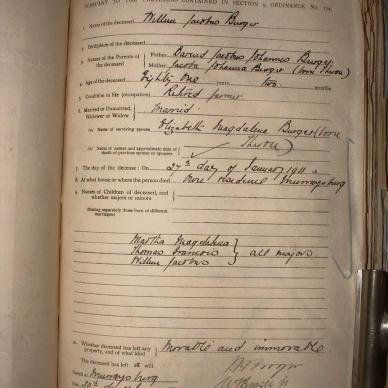 PURSUANT TO THE PROVISIONS CONTAINED IN SECTION 9, ORDINANCE No. 104.
1. Name of the deceased Willem Jacobus Burger
2. Birthplace of the deceased
3. Names of the Parents of the deceased
Father Barend Jacobus Johannes Burger
Mother Jacoba Johanna Burger (born
4. Age of the deceased Eighty One years two months
5. Condition in life (occupation) Retired farmer
6. Married or Unmarried, Widower or Widow Married
(a) Name of surviving spouse Elizabeth Magdalena Burger (born
(b) Name or names and approximate date of death of previous spouse or spouses
7. The day of the decease: On 27th day of January 1911
8. At what house or where the person died Murraysburg
9. Names of Children of deceased, and whether majors or minors
(Stating separately those born of different marriages)
Martha Magdalena
Thomas Francois } all majors
Willem Jacobus
10. Whether deceased has left any property, and of what kind Movable and immovable
The deceased has left a will.
Dated at Murraysburg